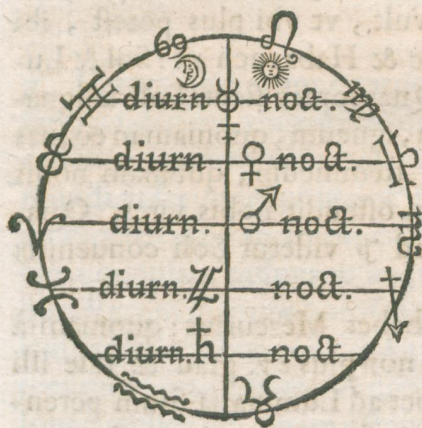 ♋ ♌
☽ ☉
♊ diurn ☿ noct. ♍
♉ diurn ♀ noct. ♎
♈ diurn. ♂ noct. ♏
♓ diurn. ♃ noct. ♐
♒ diurn. ♄ noct. ♑